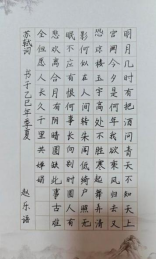 明月几时有把酒问青天不知天上
宫阙今夕是何年我欲乘风归去又
恐琼楼玉宇高处不胜寒起舞弄清
影何似在人间转朱阁低绮户照无
眠不应有恨何事长向别时圆人有
悲欢离合月有阴晴圆缺此事古难
全但愿人长久千里共婵娟
苏轼词 书于乙巳年季夏 赵乐语